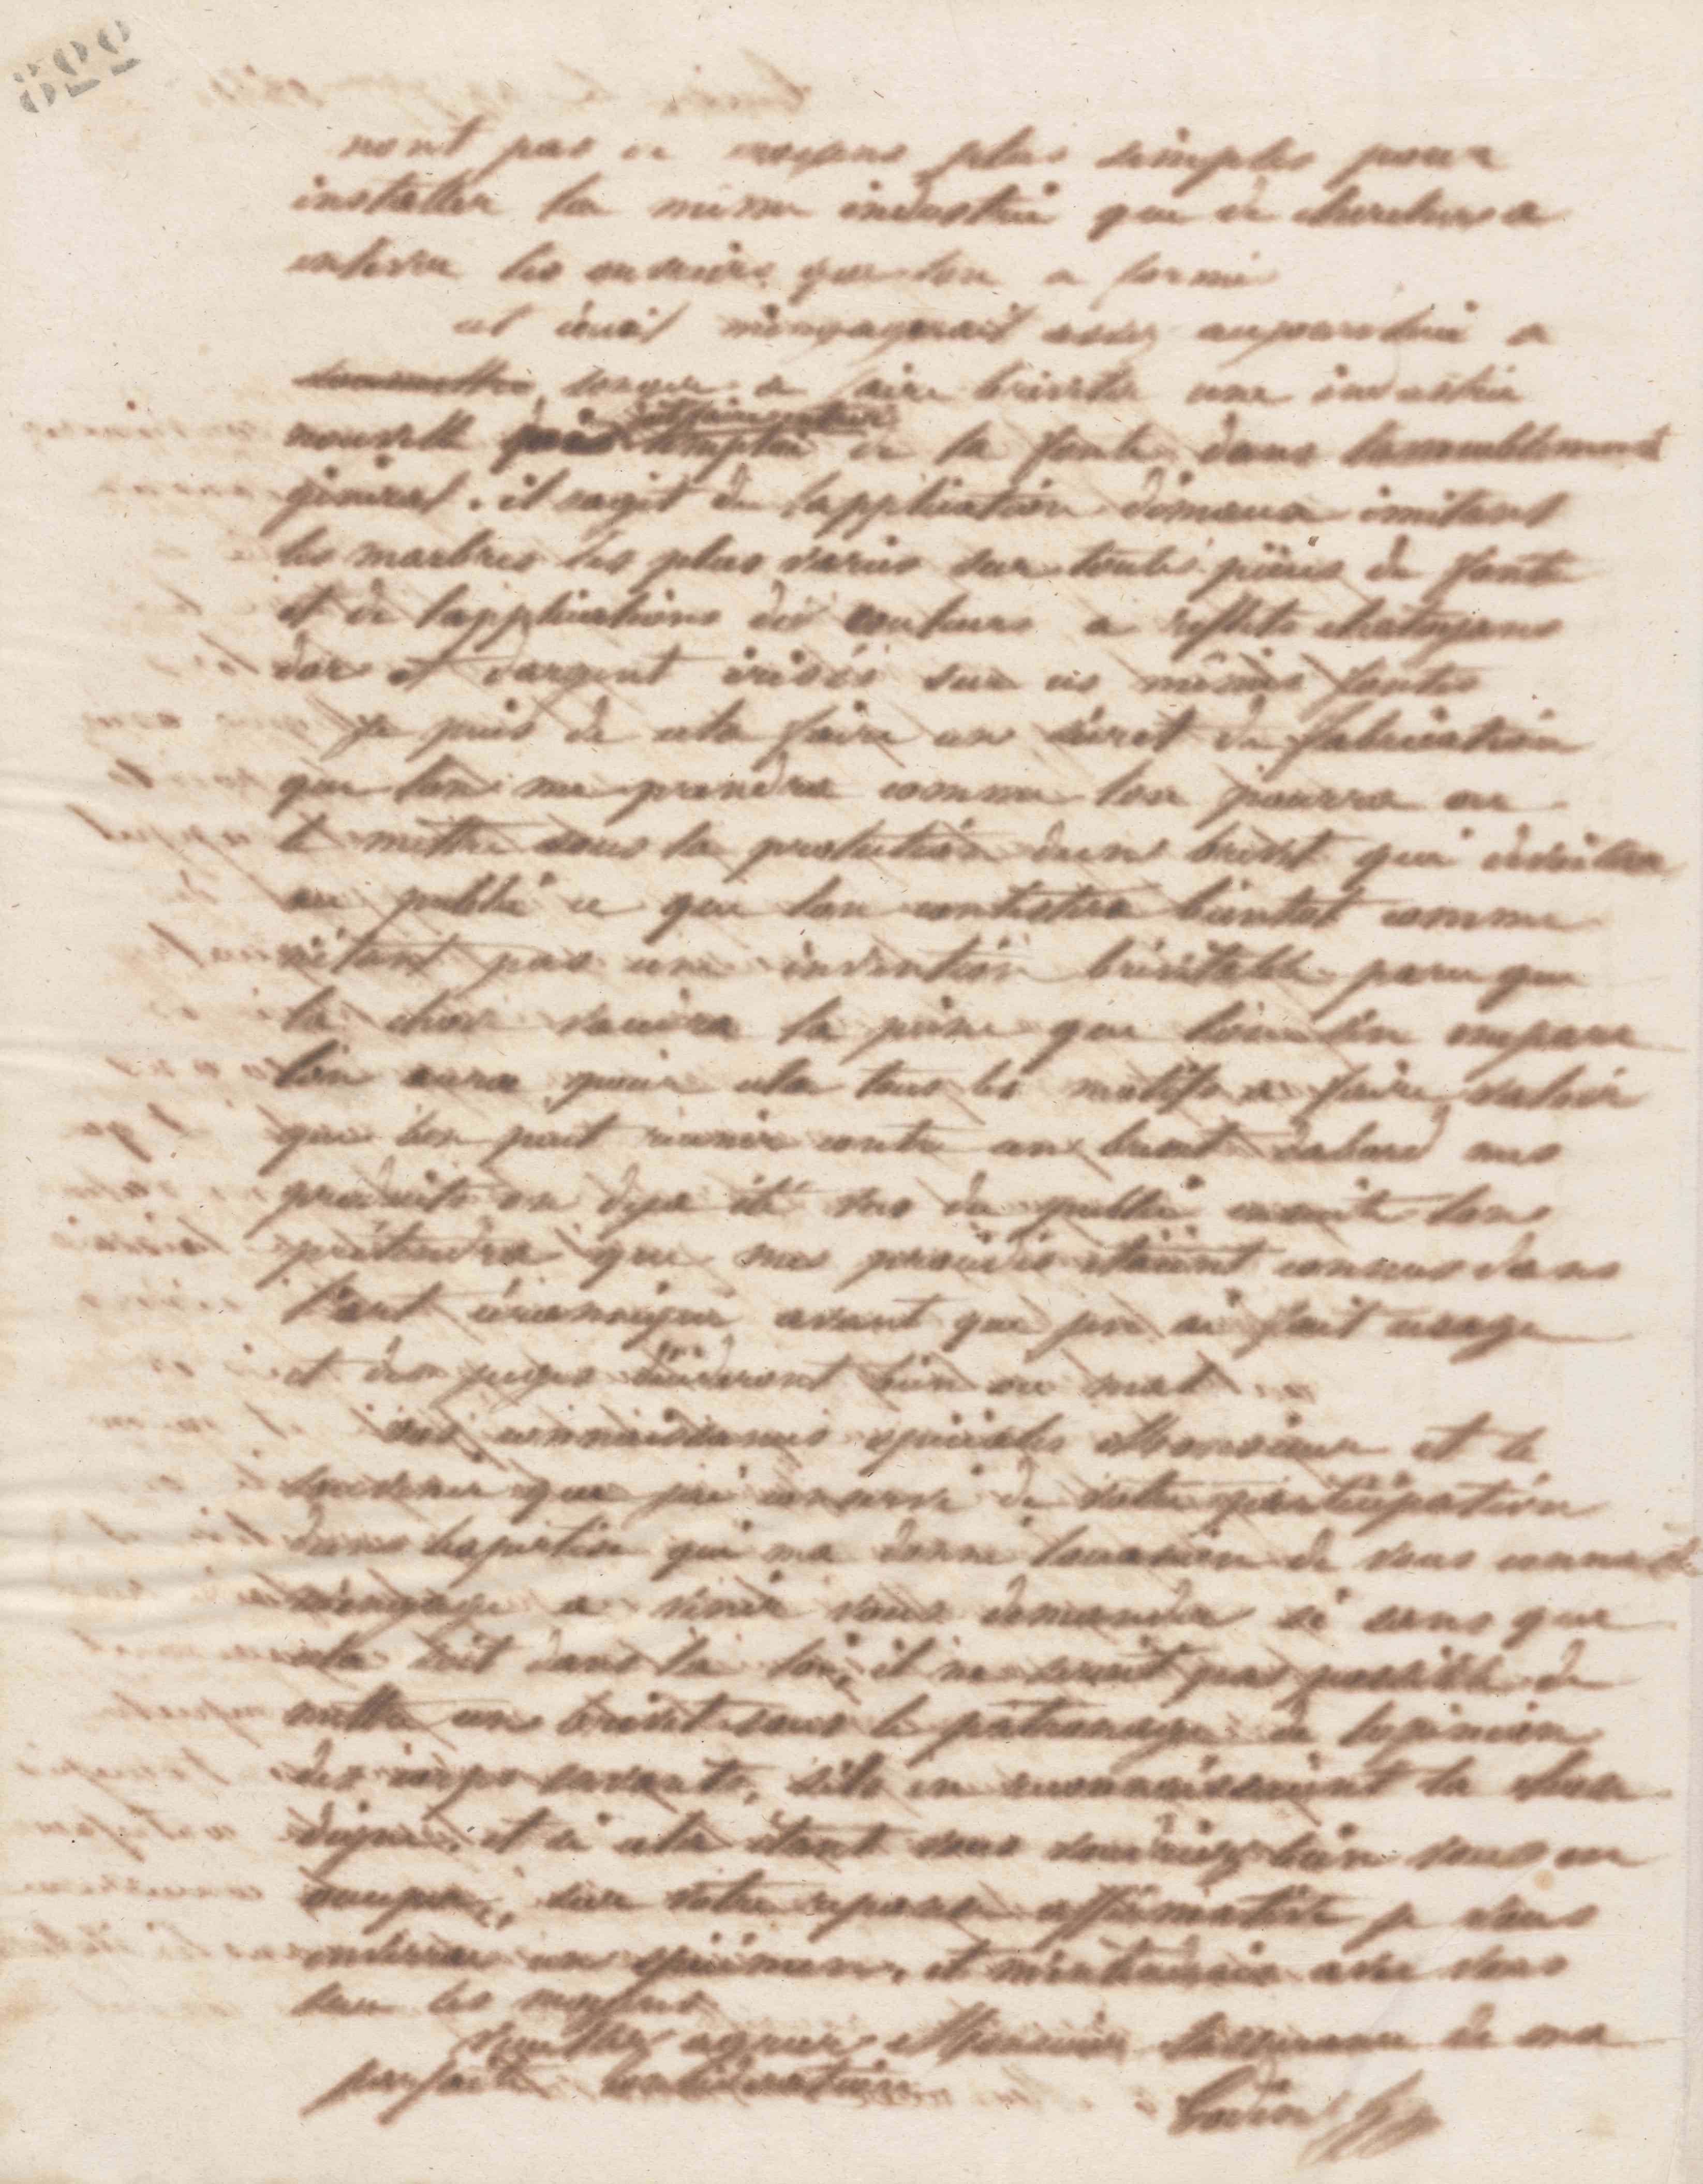 nont pas de moyens plus simples pour
installer la meme industrie que de chercher a
enlever les ouvriers que lon a formé
cet écueil mengagerait assez aujourdhui a
songer a faire breveter une industrie
nouvelle lemploi de la fonte dans lameublement
géneral. il sagit de lapplication démaux imitant
les marbres les plus variés sur toutes pièces de fonte
et de lapplications des couleurs a reflets chatoyans
dor et dargent irisés sur ces mêmes fontes
je puis de cela faire un sécret de fabrication
que lon me prendra comme lon pourra ou
le mettre sous la protection dun brevet qui
au public ce que lon contestera bientot comme
nétant pas une invention brevetable parceque
la chose vaudra la peine que lon sen empare
lon aura pour cela tous les motifs a faire valoir
que lon peut réunir contre un brevet dabord mes
produits on deja été vus du public ensuite lon
prétendra que mes procédés étaient connus dans
lart céramique avant que jen ai fait usage
et des juges décideront bien ou mal
vos connaissances spéciales Monsieur et le
souvenir que jai conservé de votre participation
dans lexpertise qui ma donné loccasion de vous connaitre
mengage a venir vous demander si sans que
cela soit dans la loi, il ne serait pas possible de
mettre un brevet sous le patronage de lopinion
des corps savants, sils en reconnaissaient la chose
digne. et si cela étant vous voudriez bien vous en
occuper, sur votre reponse affirmative je vous
enverrai un spécimen. et mentendrais avec vous
sur les moyens
Veuillez agréer Monsieur lassurance de ma
parfaite considération
Godin